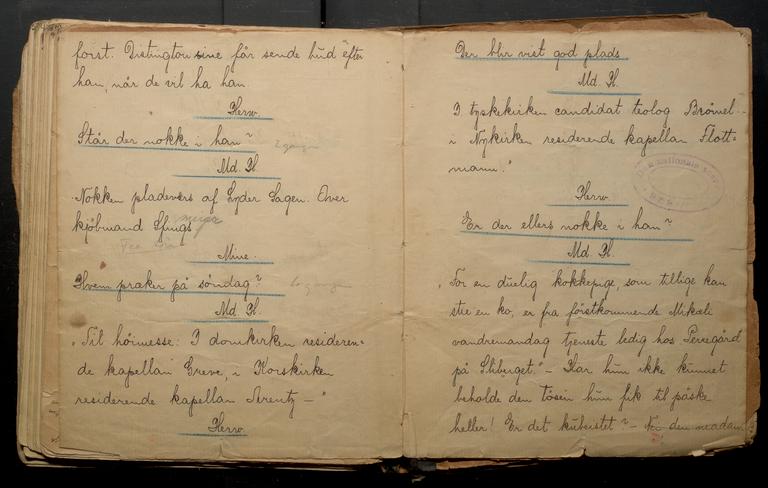 først. Distingtousine får sende bud efter
han, når de vil ha han.
Herw.
Står der nokke i han?
Md. H.
Nokken pladevers af Lyder Sagen. Over
kjøbmand
Mine.
Hvem præker på søndag?
Md. H.
"Til høimesse: I domkirken resideren-
de kapellan Greve, i Korskirken
residerende kapellan Arentz –"
Herw.
Der blir vist god plads.
Md. H.
I tyskekirken candidat teolog Brömel –
i Nykirken residerende kapellan Flott-
mann."
Herw.
Er der ellers nokke i han?
Md. H.
"For en duelig kokkepige, som tillige kan
stie en ko, er fra förstkommende Mikæli
vandremandag tjeneste ledig hos Peregård
på Stiberget." – Har hun ikke kunnet
beholde den tösen hun fik til påske
heller! Er det kuhustet? – For den madam